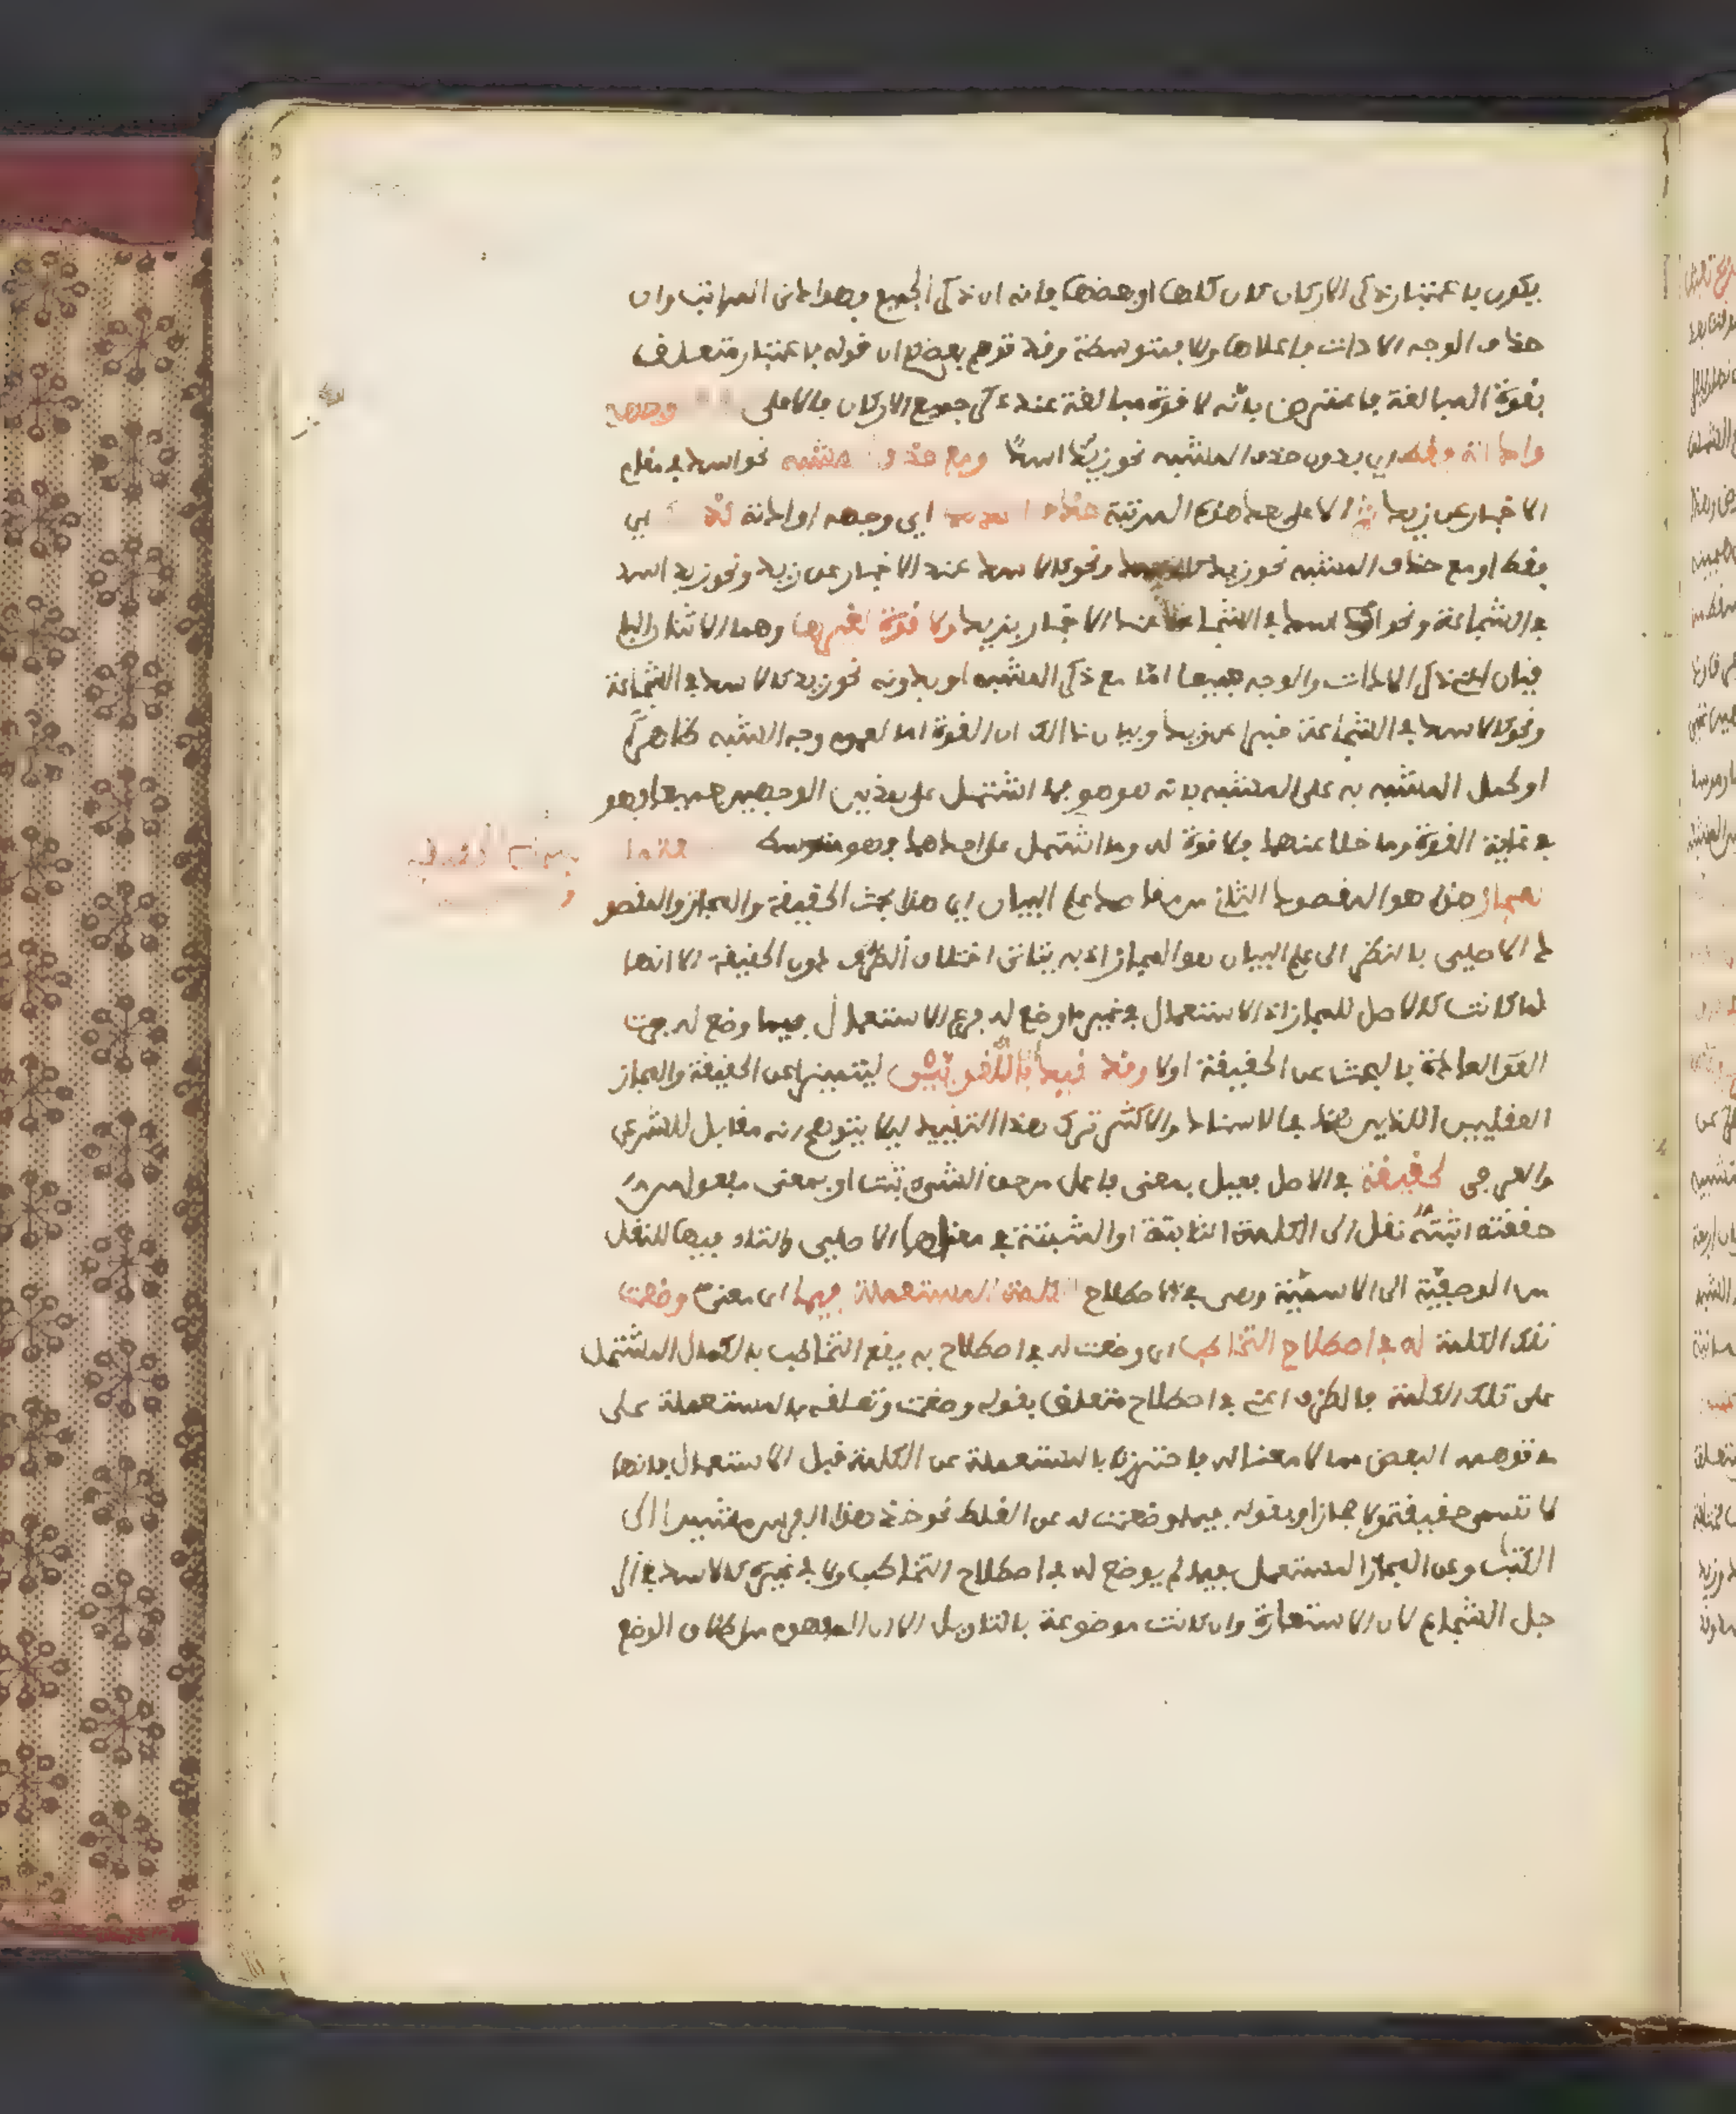 يكون باعتبار ذكر الاركان كان كلها او بعضها فانه ان ذكر الجميع فهو ادنى المراتب وان
حذف الوجه الادات فاعلاها والا فمتوسطة وقد توهم بعضهم ان قوله باعتبار متعلف
بقوة المبالغة فاعترض بانه لا قوة مبالغة عند ذكر جميع الاركان فالاعلى وجهه
واداته فقط اي بدون حذف المشبه نحو زيد اسد ومع حذف المشبه نحو اسد في مقام
الاخبار عن زيد ثم الاعلى بعد هذه المرتبة حذف احدهما اي وجهه او اداته كذلك اي
فقط او مع حذف المشبه نحو زيد كالاسد ونحو كالاسد عند الاخبار عن زيد ونحو زيد اسد
في الشجاعة ونحو اسد في الشجاعة عند الاخبار بزيد ولا قوة لغيرها وهما الاثنان البا
فيان اعني ذكر الادات والوجه جميعا اما مع ذكر المشبه او بدونه نحو زيد كالاسد في الشجاعة
ونحو كالاسد في الشجاعة خبرا عن زيد وبيان ذالك ان القوة اما لعموم وجه الشبه ظاهرا
او كحمل المشبه به على المشبه بانه هو هو فما اشتمل على هذين الوجهين جميعا فهو
في غاية القوة وما خلا عنهما فلا قوة له وما اشتمل على احدهما فهو متوسط
المجاز هذا هو المقصود الثاني من مقاصد علم البيان اي هذا بحث الحقيقة والمجاز والمقصو
د الاصلي بالنظر الى علم البيان هو المجاز اذ به يتاتى اختلاف الطرق دون الحقيقة الا انها
لما كانت كالاصل للمجاز اذ الاستعمال في غير ما وضع له فرع الاستعمال فيما وضع له جرت
العادة بالبحث عن الحقيقة اولا وقد يقيدان باللغويين ليتميزا عن الحقيقة والمجاز
العقليين اللذين هما في الاسناد والاكثر ترك هذا التقييد ليلا يتوهم انه مقابل للشرعي
والعرفي الحقيقة في الاصل فعيل بمعنى فاعل من حق الشيء ثبت او بمعنى مفعول من
حققته اثبته نقل الى الكلمة الثابتة او المثبتة في معناها الاصلي والتاء فيها للنقل
من الوصفية الى الاسمية وهي في الاصطلاح الكلمة المستعملة فيما اي معنى وضعت
تلك الكلمة له في اصطلاح التخاطب اي وضعت له في اصطلاح به يقع التخاطب بالكلام المشتمل
على تلك الكلمة فالظرف اعني في اصطلاح متعلق بقوله وضعت وتعلقه بالمستعملة على
ما توهمه البعض مما لا معنا له فاحترز بالمستعملة عن الكلمة قبل الاستعمال فانها
لا تسمى حقيقة ولا مجازا وبقوله فيما وضعت له عن الغلط نحو خذ هذا الفرس مشيرا الى
الكتاب وعن المجاز المستعمل فيما لم يوضع له في اصطلاح التخاطب ولا في غيره كالاسد في الر
جل الشجاع لان الاستعارة وان كانت موضوعة بالتاويل الا ان المفهوم من اطلاق الوضع